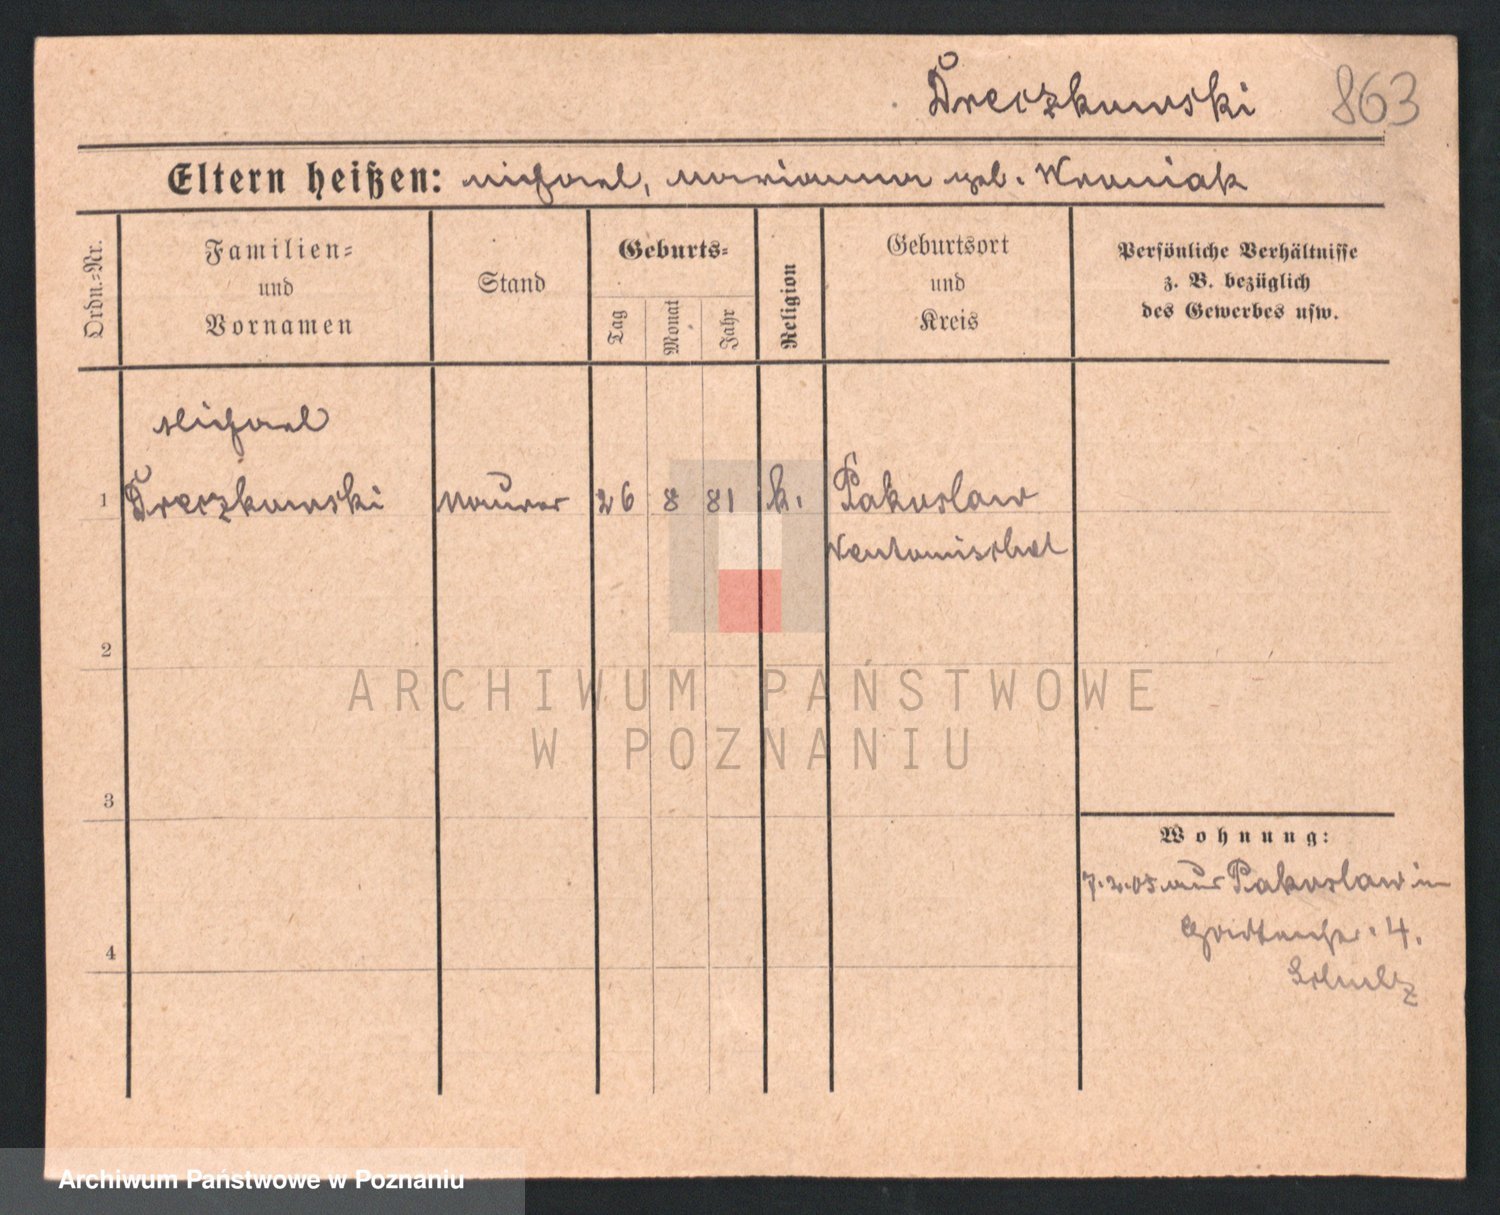 Dreczkowski 863
Eltern heißen: Michael, Marianna geb. Woźniak
Ordn.=Nr.
Familien=
und
Vornamen
Stand
Geburts=
Tag
Monat
Jahr
Religion
Geburtsort
und
Kreis
Persönliche Verhältnisse
z. B. bezüglich
des Gewerbes usw.
Michael
1 Dreczkowski Maurer 26 8 81 k. Pakoslaw
Neutomischel
2
ARCHIWUM PAŃSTWOWE
W POZNANIU
3
Wohnung:
7.2.05 aus Pakoslaw in
4. 
Schulz
4
Archiwum Państwowe w Poznaniu